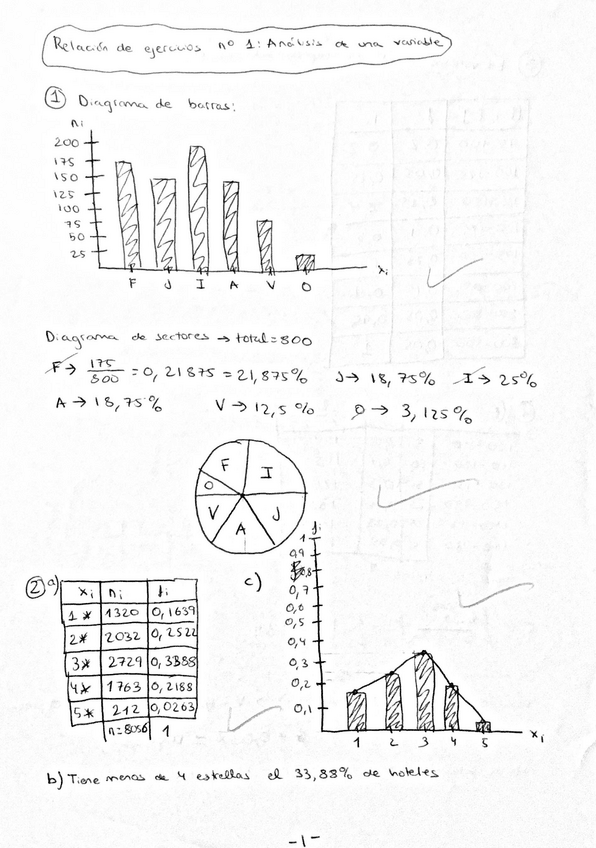 Relación de ejercicios nº 1: Análisis de una variable
① Diagrama de barras:
ni
200
175
150
125
100
75
50
25
F J I A V O xi
Diagrama de sectores → total = 800
F → 175/800 = 0,21875 = 21,875% J → 18,75% I → 25%
A → 18,75% V → 12,5% O → 3,125%
F I
O J
V A
② a)
xi ni fi
1* 1320 0,1639
2* 2032 0,2522
3* 2729 0,3388
4* 1763 0,2188
5* 212 0,0263
n=8056 1
c)
fi
1
0,9
0,8
0,7
0,6
0,5
0,4
0,3
0,2
0,1
1 2 3 4 5 xi
b) Tiene menos de 4 estrellas el 33,88% de hoteles
-1-